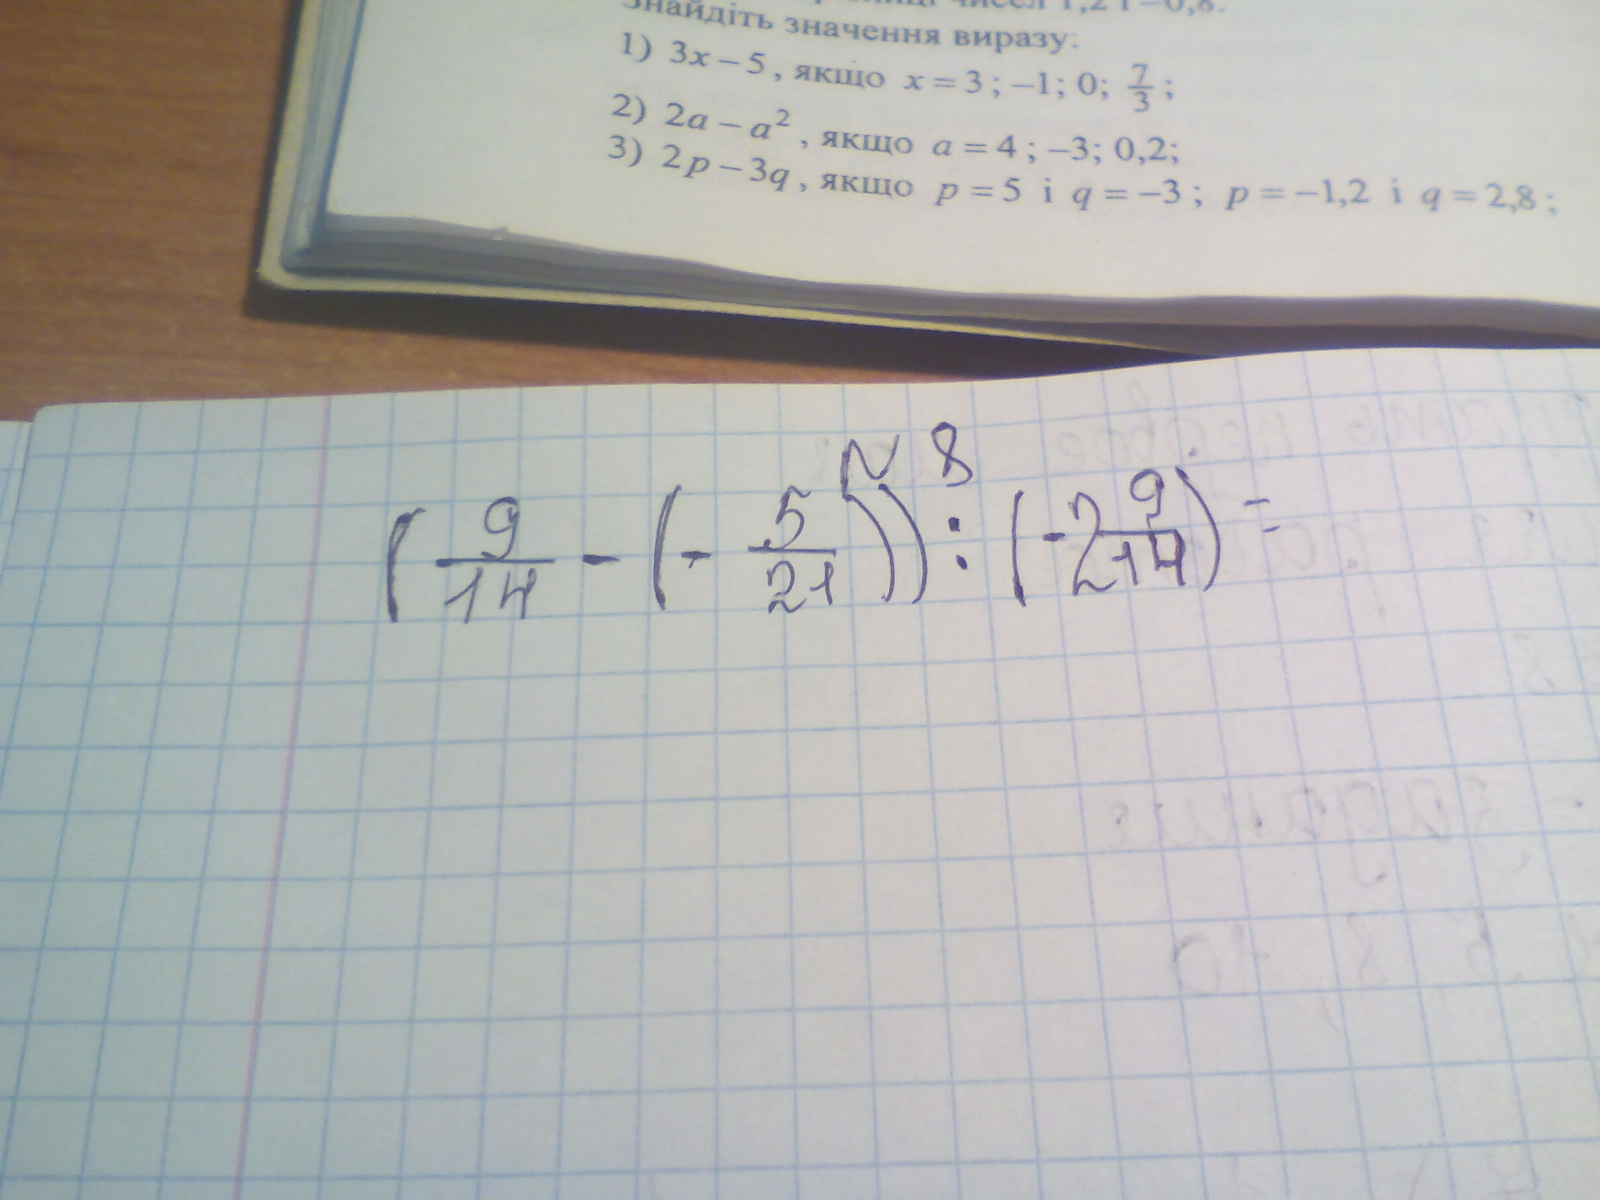 чисел 1,2 і −0,8.
Знайдіть значення виразу:
1) 3x − 5, якщо x = 3; −1; 0; 7/3;
2) 2a − a², якщо a = 4; −3; 0,2;
3) 2p − 3q, якщо p = 5 і q = −3; p = −1,2 і q = 2,8;
N 8
(9/14 - (- 5/21)) : (-2 9/14) =